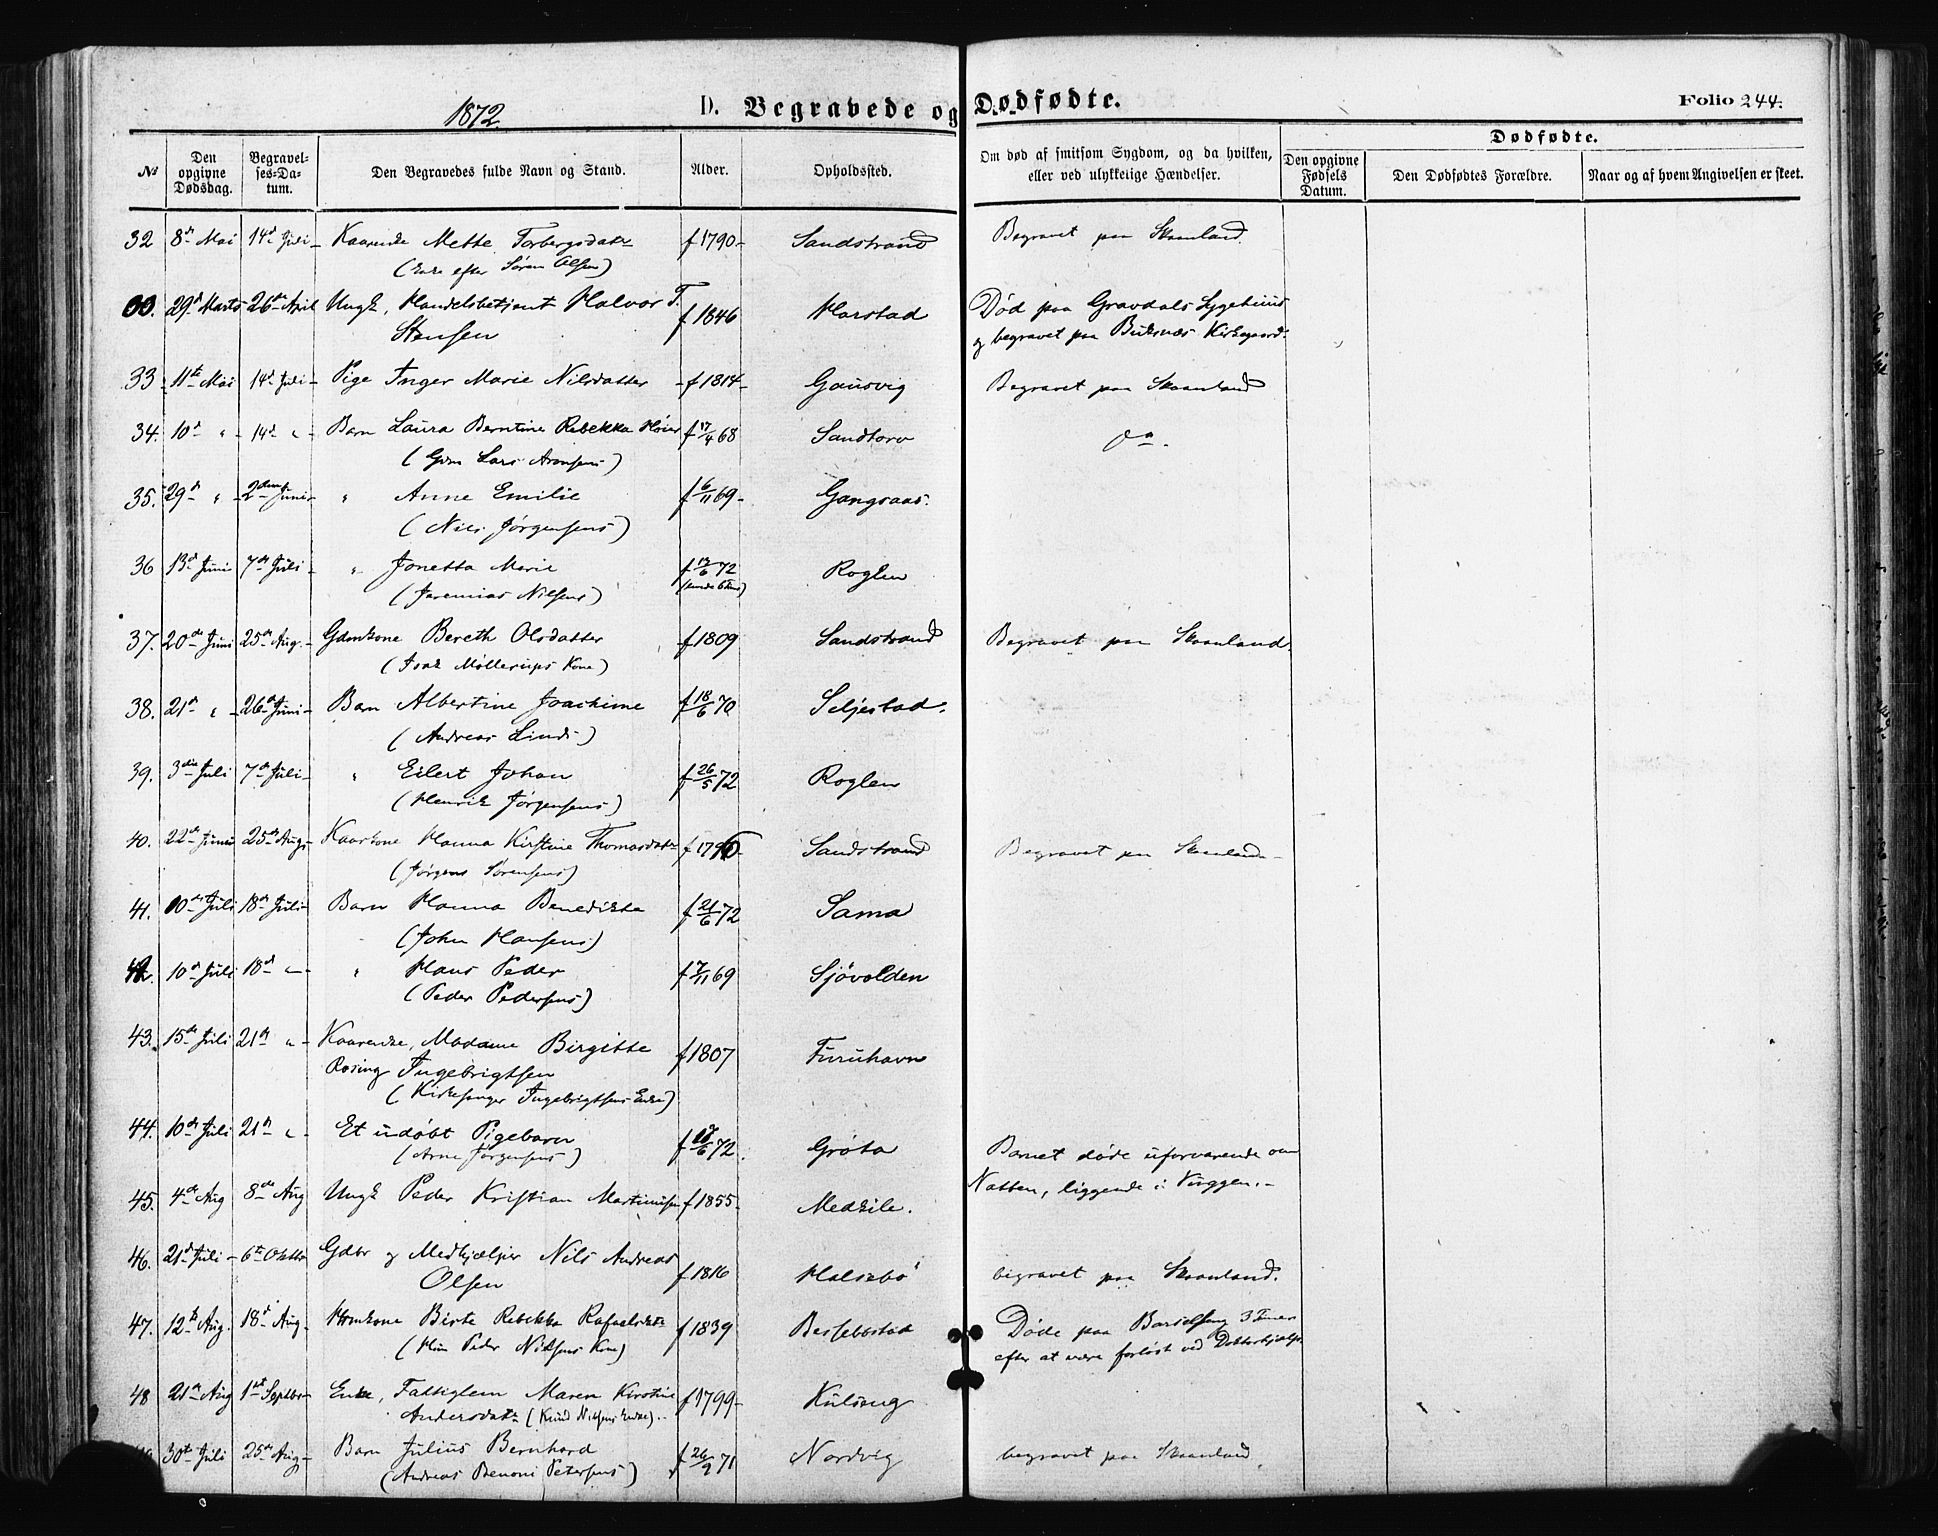 1872.
D. Begravede og Dødfødte.
Folio 244.
Dødfødte.
No
Den opgivne Dødsdag.
Begravelses-Datum.
Den Begravedes fulde Navn og Stand.
Alder.
Opholdssted.
Om død af smitsom Sygdom, og da hvilken, eller ved ulykkelige Hændelser.
Den opgivne Fødsels Datum.
Den Dødfødtes Forældre.
Naar og af hvem Angivelsen er skeet.
32 8de Mai 14de Juli Kaarenke Mette Torbergsdatr f 1790 Sandstrand Begravet paa Skaanland.
(Enke efter Sören Olsen)
29de Marts 26de April Ungk. Handelsbetjent Halvor T. f 1846 Harstad Død paa Gravdals Sygehuus
Stensen og begravet paa Buksnæs Kirkegaard.
33 11te Mai 14de Juli Pige Inger Marie Nilsdatter f 1814 Gausvig Begravet paa Skaanland
34. 10de " 14de " Barn Laura Berntine Rebekka Höier f 17/4 68 Sandtorv Do.
(Gdm Lars Aronsens)
35. 29de " 2den Juni " Anne Emilie f 6/11 69 Gangsaas.
(Nils Jörgensens)
36 13de Juni 7de Juli " Jonetta Marie f 12/6 72 Roglen
(Jeremias Nilsens)
37. 20de Juni 25de Aug. Gdmkone Bereth Olsdatter f 1809 Sandstrand Begravet paa Skaanland.
(Isak Möllerups Kone)
38. 21de " 26de Juni Barn Albertine Joachime f 18/6 70 Seljestad.
(Andreas Linds)
39. 3die Juli 7de Juli " Eilert Johan f 26/5 72 Roglen
(Henrik Jörgensens)
40. 22de Juni 25de Aug. Kaarkone Hanna Kirstine Thomasdatr f 1790 Sandstrand Begravet paa Skaanland
(Jörgens Sörensens)
41. 10de Juli 18de Juli Barn Hanna Benedikte f 21/6 72 Sama
(John Hansens)
42. 10de Juli 18de " " Hans Peder f 7/11 69 Sjövolden
(Peder Pedersens)
43. 15de Juli 21de " Kaarenke, Madame Birgitte f 1807 Furuhavn
Rosing Ingebrigtsen
(Kirkesanger Ingebrigtsens Enke)
44. 10de Juli 21de " Et udöbt Pigebarn /6 72. Gröta Barnet døde uforvarende om
(Arne Jörgensens) Natten, liggende i Vuggen.
45. 4de Aug 8de Aug Ungk Peder Kristian Martinussen f 1855 Medkile.
46. 21de Juli 6te Oktbr Gdbr og Medhjælper Nils Andreas f 1816 Halsebö begravet paa Skaanland.
Olsen
47. 12te Aug. 18de Aug. Hmkone Birte Rebekka Rafaelsdatr f 1839 Bessebostad Døde paa Barselseng 3 Timer
(Hm Peder Nilsens Kone) efter at være forløst ved Doktorhjælp.
48 21de Aug 1ste Septbr Enke, Fattiglem Maren Kirstine f 1799 Kulseng
Andersdatr (Knud Nilsens Enke).
30te Juli 25de Aug. Barn Julius Bernhard f 26/9 71 Nordvig begravet paa Skaanland.
(Andreas Benoni Petersens)